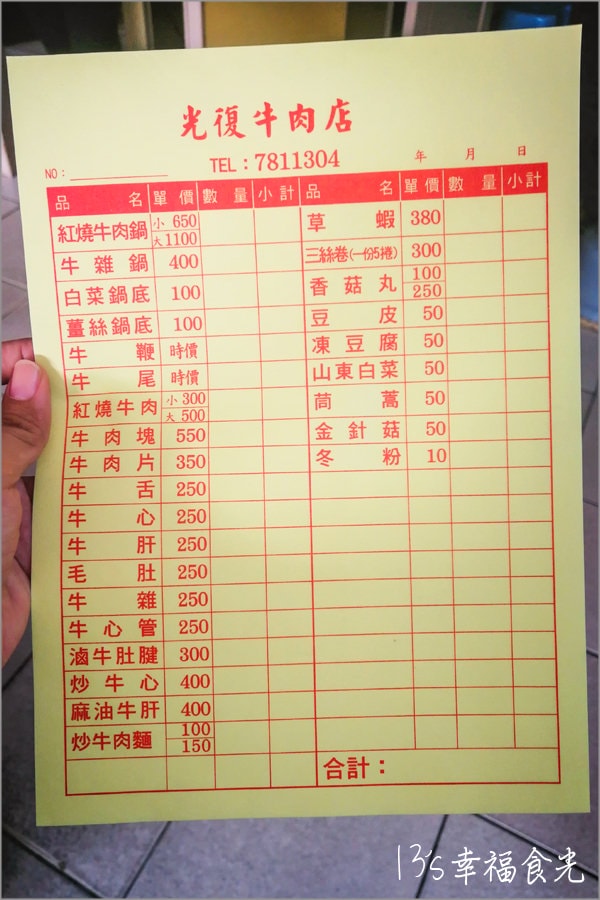 光復牛肉店
NO：
TEL：7811304
年 月 日
品名 單價 數量 小計 品名 單價 數量 小計
紅燒牛肉鍋 小 650 大 1100 草蝦 380
牛雜鍋 400 三絲卷(一份5捲) 300
白菜鍋底 100 香菇丸 100 250
薑絲鍋底 100 豆皮 50
牛鞭 時價 凍豆腐 50
牛尾 時價 山東白菜 50
紅燒牛肉 小 300 大 500 茼蒿 50
牛肉塊 550 金針菇 50
牛肉片 350 冬粉 10
牛舌 250
牛心 250
牛肝 250
毛肚 250
牛雜 250
牛心管 250
滷牛肚腱 300
炒牛心 400
麻油牛肝 400
炒牛肉麵 100 150
合計：
13's幸福食光